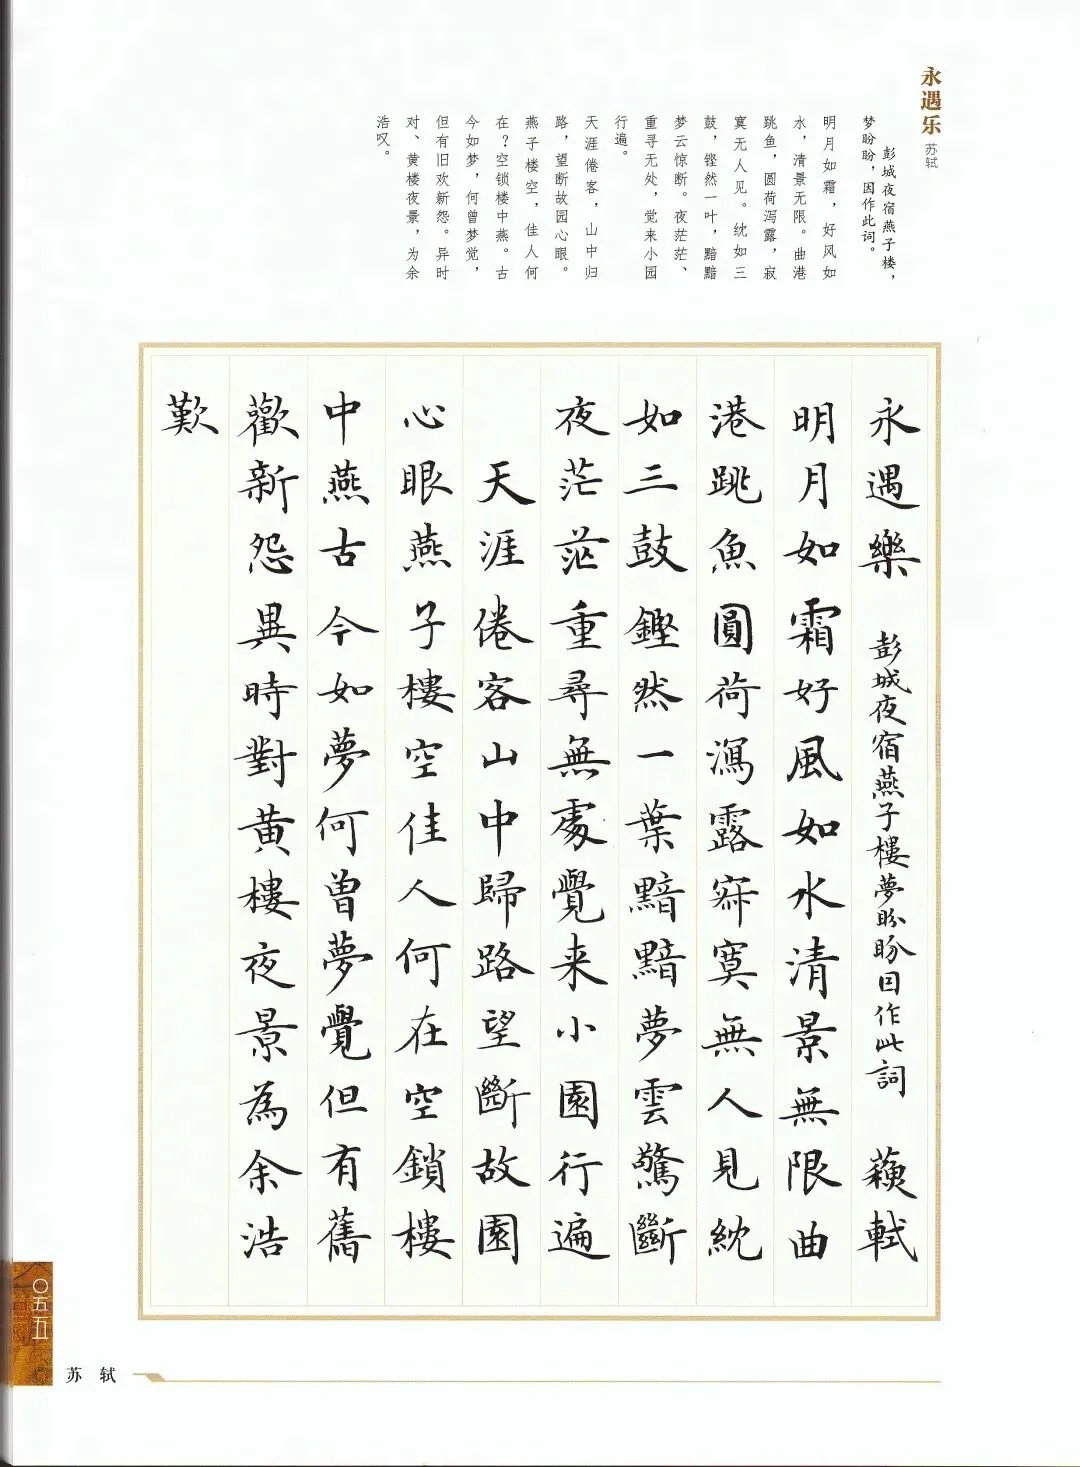 永遇乐 苏轼
彭城夜宿燕子楼，
梦盼盼，因作此词。
明月如霜，好风如
水，清景无限。曲港
跳鱼，圆荷泻露，寂
寞无人见。紞如三
鼓，铿然一叶，黯黯
梦云惊断。夜茫茫、
重寻无处，觉来小园
行遍。
天涯倦客，山中归
路，望断故园心眼。
燕子楼空，佳人何
在？空锁楼中燕。古
今如梦，何曾梦觉，
但有旧欢新怨。异时
对、黄楼夜景，为余
浩叹。
永遇樂 彭城夜宿燕子樓夢盼盼因作此詞 蘇軾
明月如霜好風如水清景無限曲
港跳魚圓荷瀉露寂寞無人見紞
如三鼓鏗然一葉黯黯夢雲驚斷
夜茫茫重尋無處覺来小園行遍
天涯倦客山中歸路望斷故園
心眼燕子樓空佳人何在空鎖樓
中燕古今如夢何曾夢覺但有舊
歡新怨異時對黃樓夜景為余浩
歎
〇五五
苏轼